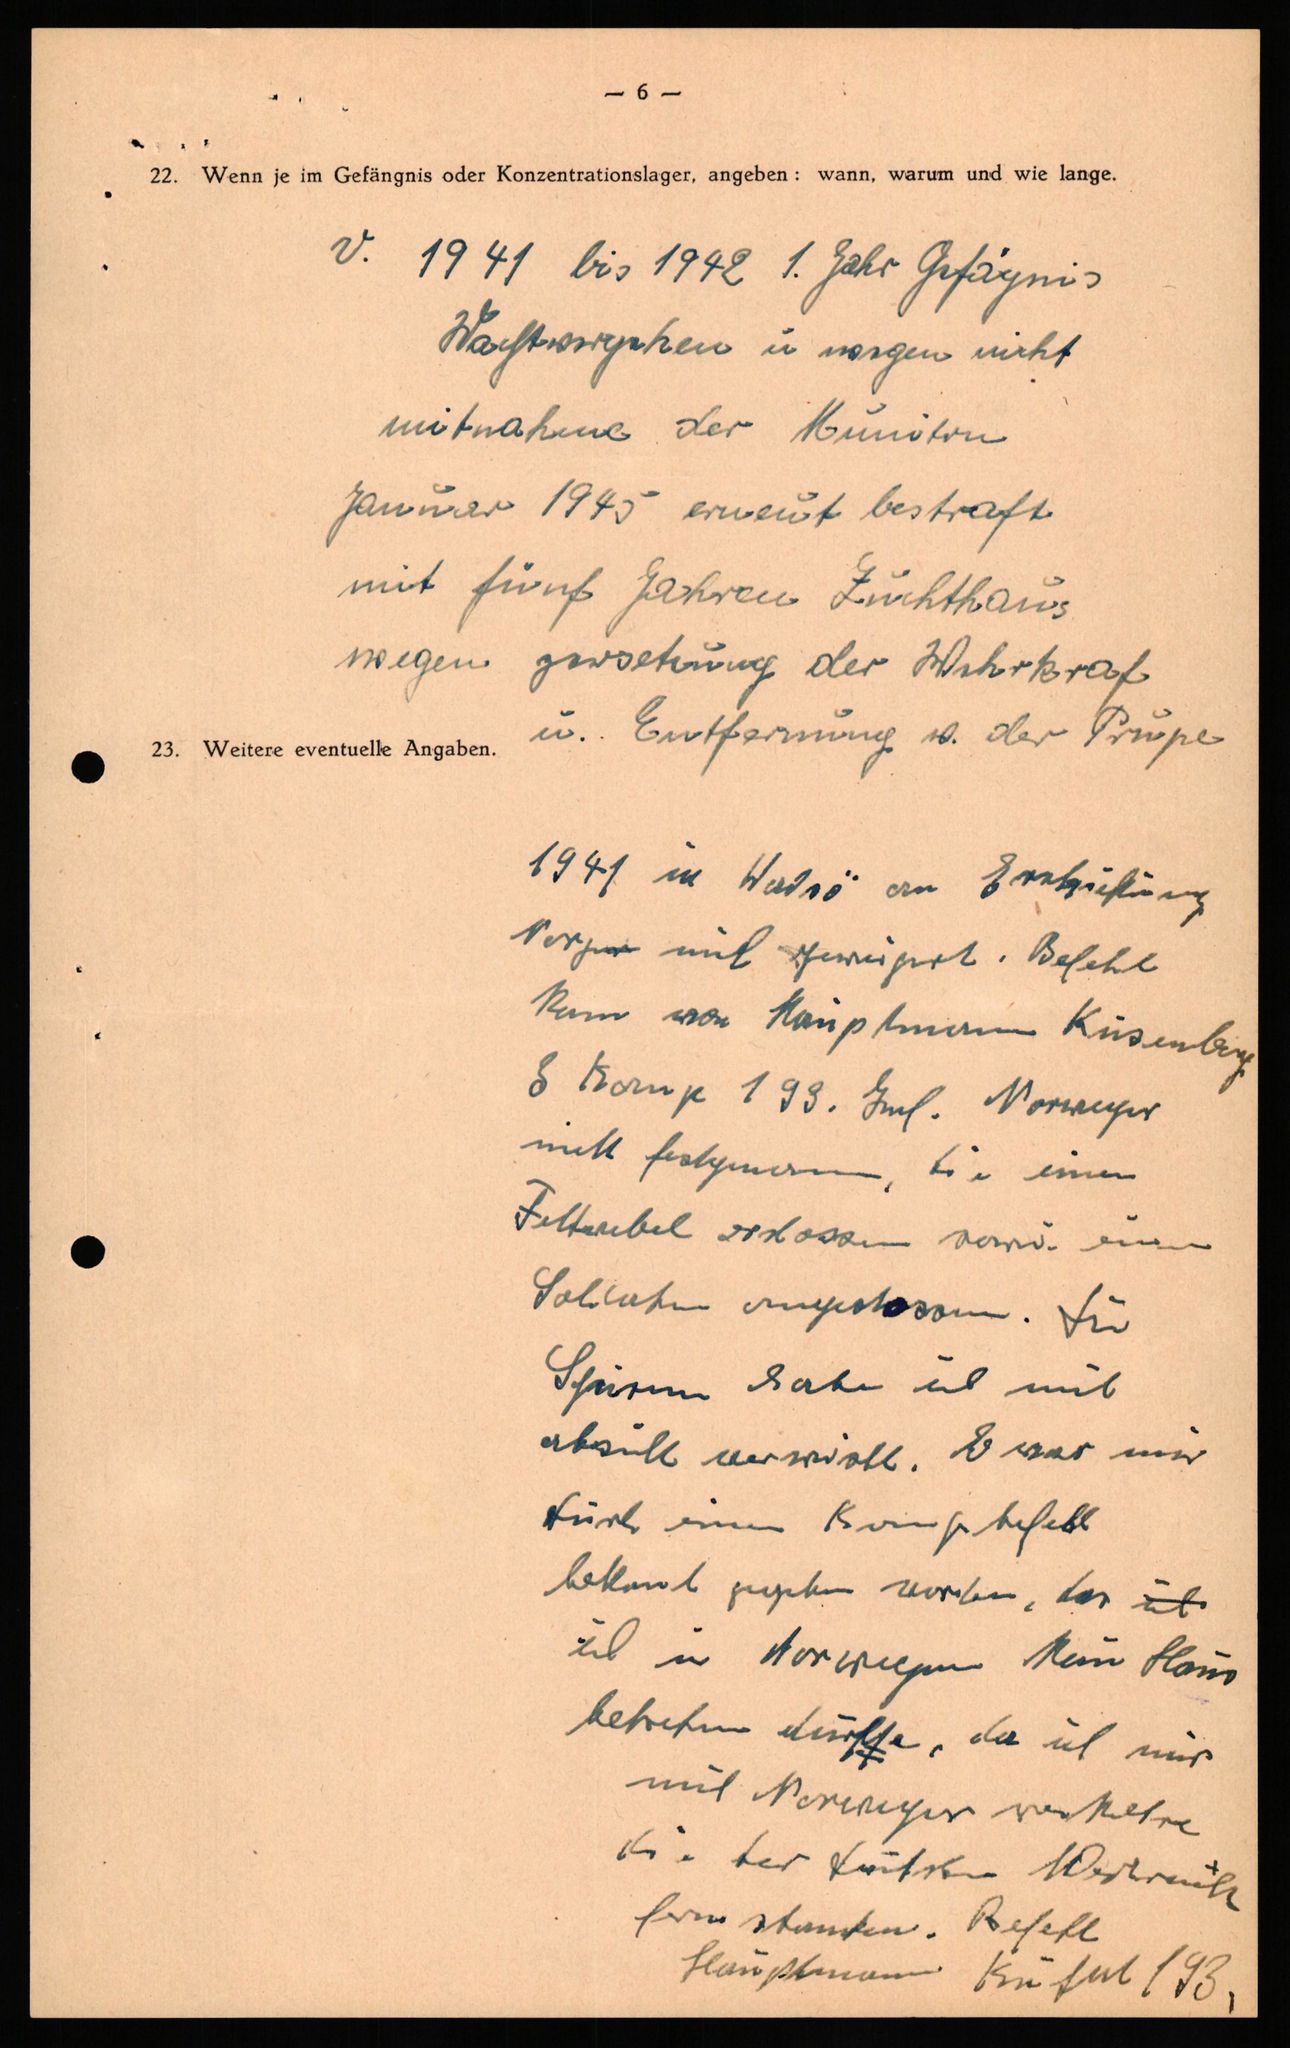 — 6 —
22. Wenn je im Gefängnis oder Konzentrationslager, angeben: wann, warum und wie lange.
v. 1941 bis 1942 1. Jahr Gefägnis
Wachtvergehen u wegen nicht
mitnahme der Muniton
Januar 1945 erneut bestraft
mit fünf Jahren Zuchthaus
wegen zersetzung der Wehrkraf
u. Entfernung v. der Trupe
23. Weitere eventuelle Angaben.
1941 in Wadsö an
Befehl
kam von Hauptmann Küsenberg
Komp 193. Inf. Norweger
die einen
Feltwebel sowie einen
Soldaten angestossen. Die
Spuren habe ich mit
verwischt. E war mir
durch einen Kompbefehl
bekant gegeben worden, das
ich in Norwegen kein Haus
betreten durfte, da ich nur
mit Norweger verkehre
die der deutschen
fern standen. Befehl
Hauptmann 193.